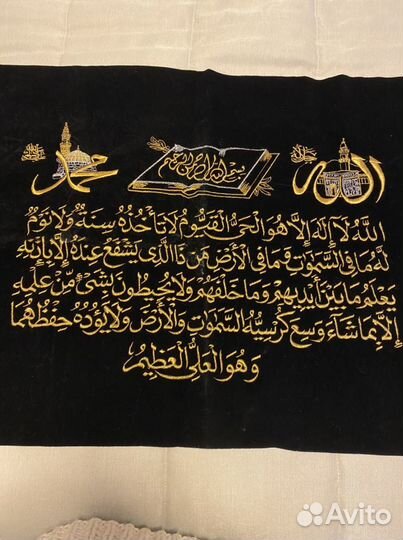 الله جل جلاله
بسم الله الرحمن الرحيم
محمد
اللَّهُ لَا إِلَهَ إِلَّا هُوَ الْحَيُّ الْقَيُّومُ لَا تَأْخُذُهُ سِنَةٌ وَلَا نَوْمٌ
لَهُ مَا فِي السَّمَوَتِ وَمَا فِي الْأَرْضِ مَنْ ذَا الَّذِي يَشْفَعُ عِنْدَهُ إِلَّا بِإِذْنِهِ
يَعْلَمُ مَا بَيْنَ أَيْدِيهِمْ وَمَا خَلْفَهُمْ وَلَا يُحِيطُونَ بِشَيْءٍ مِّنْ عِلْمِهِ
إِلَّا بِمَا شَاءَ وَسِعَ كُرْسِيُّهُ السَّمَوَتِ وَالْأَرْضَ وَلَا يَؤُدُهُ حِفْظُهُمَا
وَهُوَ الْعَلِيُّ الْعَظِيمُ
Avito